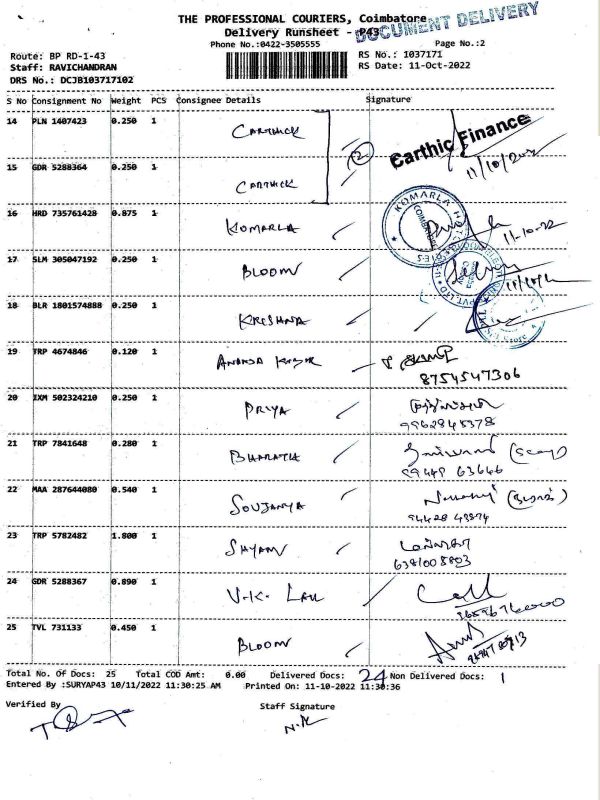 THE PROFESSIONAL COURIERS, Coimbatore
DOCUMENT DELIVERY
Delivery Runsheet - P43
Phone No.:0422-3505555
Page No.:2
Route: BP RD-1-43
RS No.: 1037171
Staff: RAVICHANDRAN
RS Date: 11-Oct-2022
DRS No.: DCJB103717102
S No Consignment No Weight PCS Consignee Details Signature
14 PLN 1407423 0.250 1 CARTHICK
2 Carthic Finance
11/10/2022
15 GDR 5288364 0.250 1 CARTHICK
16 HRD 735761428 0.875 1 KOMARLA
KOMARLA
11-10-22
17 SLM 305047192 0.250 1 BLOOM
18 BLR 1801574888 0.250 1 KRISHNA
19 TRP 4674846 0.120 1 ANANDA KUMAR
8754547306
20 IXM 502324210 0.250 1 PRIYA
9962845378
21 TRP 7841648 0.280 1 BHARATH
99449 63646
22 MAA 287644080 0.540 1 SOUJANYA
23 TRP 5782482 1.800 1 SHYAM
6381005803
24 GDR 5288367 0.890 1 V.K. LALL
25 TVL 731133 0.450 1 BLOOM
Total No. Of Docs: 25 Total COD Amt: 0.00 Delivered Docs: 24 Non Delivered Docs: 1
Entered By :SURYAP43 10/11/2022 11:30:25 AM Printed On: 11-10-2022 11:30:36
Verified By
Staff Signature